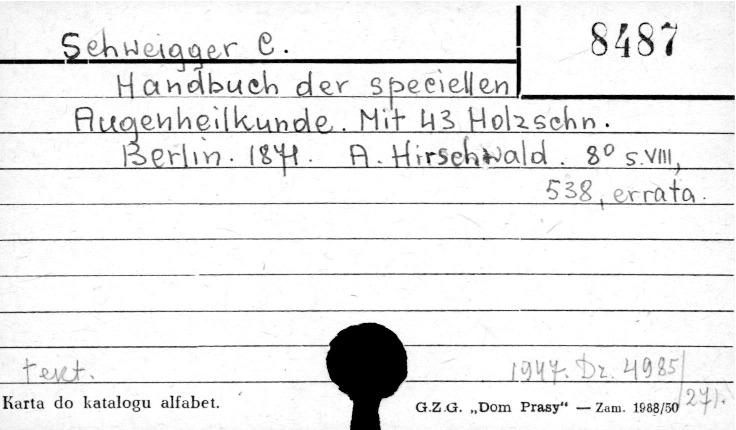 8487
Schweigger C.
Handbuch der speciellen
Augenheilkunde. Mit 43 Holzschn.
Berlin. 1871. A. Hirschwald. 8° s. VIII,
538, errata.
tekt.
1947. Dz. 4985/271.
Karta do katalogu alfabet.
G.Z.G. „Dom Prasy“ — Zam. 1988/50